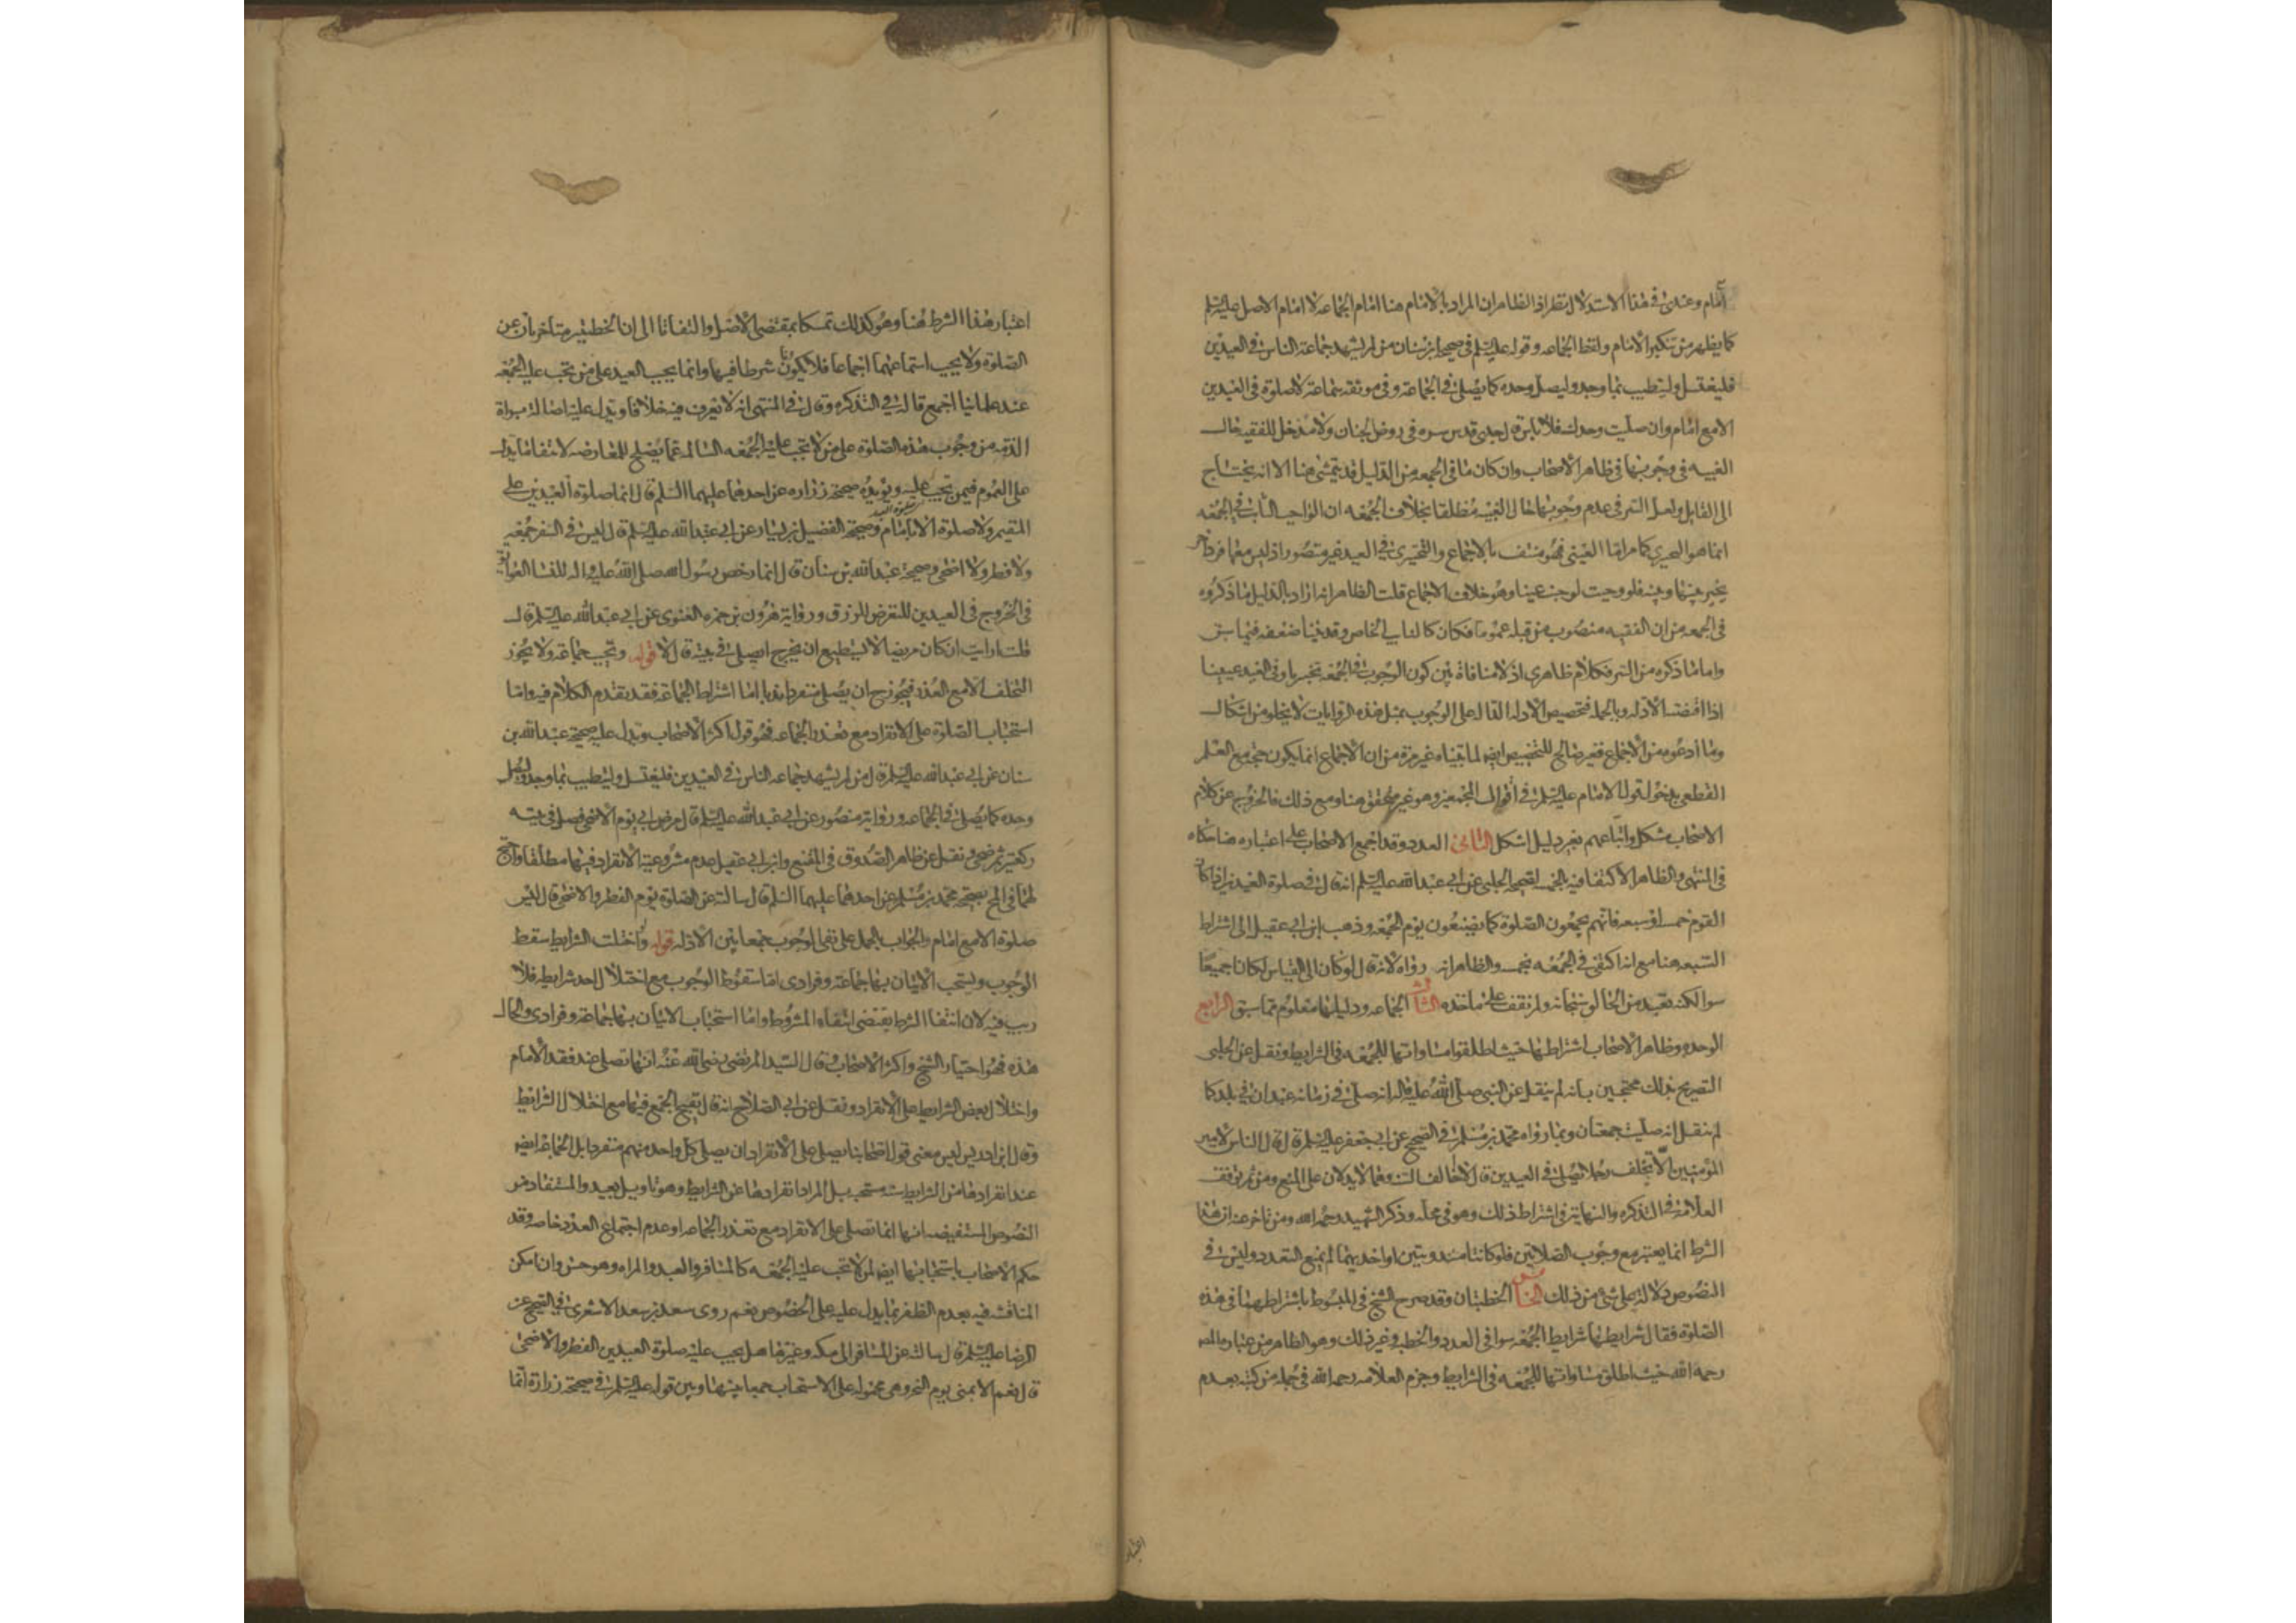 امام وعندی فی هذا الاستدلال نظر اذ الظاهر ان المراد بالامام هنا امام الجماعه لا امام الاصل علیه السلم
کما یظهر من تنکیر الامام ولفظ الجماعه وقوله علیه السلم فی صحیحه ابن سنان من لم یشهد جماعة الناس فی العیدین
فلیغتسل ولیتطیب بما وجد ولیصل وحده کما یصلی فی الجماعة وفی موثقه سماعة لا صلوة فی العیدین
الا مع امام وان صلیت وحدک فلا باس قال جدی قدس سره فی روض الجنان ولا مدخل للفقیه حال
الغیبه فی وجوبها فی ظاهر الاصحاب وان کان ما فی الجمعه من الدلیل قد یتمشی هنا الا انه یحتاج
الی القایل ولعل السر فی عدم وجوبها حال الغیبه مطلقا بخلاف الجمعه ان الواجب الثابت فی الجمعه
انما هو التخییری کما مر اما العینی فهو منتف بالاجماع والتخییری فی العید غیر متصور اذ لیس معها فرد اخر
یخیر بینها وبینه فلو وجبت لوجبت عینا وهو خلاف الاجماع قلت الظاهر انه اراد بالدلیل ما ذکروه
فی الجمعه من ان الفقیه منصوب من قبله عموما فکان کالنایب الخاص وقد بینا ضعفه فیما سبق
واما ما ذکره من السر فکلام ظاهری اذ لا منافاة بین کون الوجوب فی الجمعه تخییریا وفی العید عینیا
اذا اقتضته الادله وبالجمله فتخصیص الادله الداله علی الوجوب بمثل هذه الروایات لا یخلو من اشکال
وما ادعوه من الاجماع فغیر صالح للتخصیص ایضا لما بیناه غیر مرة من ان الاجماع انما یکون حجة مع العلم
القطعی بدخول قول الامام علیه السلم فی اقوال المجمعین وهو غیر متحقق هنا ومع ذلک فالخروج عن کلام
الاصحاب مشکل واتباعهم بغیر دلیل اشکل الثانی العدد وقد اجمع الاصحاب علی اعتباره هنا حکاه
فی المنتهی والظاهر الاکتفا فیه بالخمسه لصحیحه الحلبی عن ابی عبدالله علیه السلم انه قال فی صلوة العیدین اذا کان
القوم خمسه او سبعه فانهم یجمعون الصلوة کما یصنعون یوم الجمعه وذهب ابن ابی عقیل الی اشتراط
السبعه هنا مع انه اکتفی فی الجمعه بخمسه والظاهر انه رواه لانه قال لو کان الی القیاس لکانا جمیعا
سوا لکنه تعبد من الخالق سبحانه ولم نقف علی ماخذه الثالث الجماعه ودلیلها معلوم مما سبق الرابع
الوحده وظاهر الاصحاب اشتراطها حیث اطلقوا مساواتها للجمعه فی الشرایط ونقل عن الحلبی
التصریح بذلک محتجین بانه لم ینقل عن النبی صلی الله علیه واله انه صلی فی زمانه عیدان فی بلد کما
لم ینقل انه صلیت جمعتان وبما رواه محمد بن مسلم فی الصحیح عن ابی جعفر علیه السلم قال قال الناس لامیر
المؤمنین الا تخلف رجلا یصلی فی العیدین قال لا اخالف السنه وهما لا یدلان علی المنع ومن ثم توقف
العلامة فی التذکره والنهایة فی اشتراط ذلک وهو فی محله وذکر الشهید رحمه الله ومن تاخر عنه ان هذا
الشرط انما یعتبر مع وجوب الصلاتین فلو کانتا مندوبتین او احدیهما لم یمنع التعدد ولیس فی
النصوص دلالة علی شئ من ذلک الخامس الخطبتان وقد صرح الشیخ فی المبسوط باشتراطهما فی هذه
الصلوة فقال شرایطها شرایط الجمعه سوا فی العدد والخطبه وغیر ذلک وهو الظاهر من عبارة المصنف
رحمه الله حیث اطلق مساواتها للجمعه فی الشرایط وجزم العلامه رحمه الله فی جمله من کتبه بعدم
اعتبار
اعتبار هذا الشرط هنا وهو کذلک تمسکا بمقتضی الاصل والتفاتا الی ان الخطبتین متاخرتان عن
الصلوة ولا یجب استماعهما اجماعا فلا یکونا شرطا فیها وانما یجب العید علی من تجب علیه الجمعه
عند علمائنا اجمع قاله فی التذکره وقال فی المنتهی انه لا نعرف فیه خلافا ویدل علیه اصالة براءة
الذمه من وجوب هذه الصلوة علی من لا تجب علیه الجمعه السالمه عما یصلح للمعارضه لانتفا ما یدل
علی العموم فیمن تجب علیه ویؤیده صحیحة زراره عن احدهما علیهما السلم قال انما صلوة العیدین علی
المقیم ولا صلوة الا بامام وصحیحة الفضیل بن یسار عن ابی عبدالله علیه السلم قال لیس فی السفر جمعه
ولا فطر ولا اضحی وصحیحة عبدالله بن سنان قال انما رخص رسول الله صلی الله علیه واله للنساء العواتق
فی الخروج فی العیدین للتعرض للرزق وروایة هرون بن حمزه الغنوی عن ابی عبدالله علیه السلم قال
قلت ارایت ان کان مریضا لا یستطیع ان یخرج ایصلی فی بیته قال لا قوله وتجب جماعة ولا یجوز
التخلف الا مع العذر فیجوز ح ان یصلی منفردا ندبا اما اشتراط الجماعة فقد تقدم الکلام فیه واما
استحباب الصلوة علی الانفراد مع تعذر الجماعه فهو قول اکثر الاصحاب ویدل علیه صحیحة عبدالله بن
سنان عن ابی عبدالله علیه السلم قال من لم یشهد جماعه الناس فی العیدین فلیغتسل ولیتطیب بما وجد ولیصل
وحده کما یصلی فی الجماعه وروایة منصور عن ابی عبدالله علیه السلم قال مرض ابی یوم الاضحی فصلی فی بیته
رکعتین ثم ضحی ونقل عن ظاهر الصدوق فی المقنع وابن ابی عقیل عدم مشروعیة الانفراد فیها مطلقا واحتج
لهما فی المخ بصحیحة محمد بن مسلم عن احدهما علیهما السلم قال سالته عن الصلوة یوم الفطر والاضحی قال لیس
صلوة الا مع امام والجواب بالحمل علی نفی الوجوب جمعا بین الادله قوله ولو اختلت الشرایط سقط
الوجوب ویستحب الاتیان بها جماعة وفرادی اما سقوط الوجوب مع اختلال احد شرایطه فلا
ریب فیه لان انتفا الشرط یقتضی انتفاء المشروط واما استحباب الاتیان بها جماعة وفرادی والحال
هذه فهو اختیار الشیخ واکثر الاصحاب وقال السید المرتضی رضی الله عنه انها تصلی عند فقد الامام
واختلال بعض الشرایط علی الانفراد ونقل عن ابی الصلاح انه قال یقبح الجمع فیها مع اختلال الشرائط
وقال ابن ادریس لیس معنی قول اصحابنا یصلی علی الانفراد ان یصلی کل واحد منهم منفردا بل الجماعة ایضا
عند انفرادها من الشرایط سنه مستحبه بل المراد انفرادها عن الشرایط وهو تاویل بعید والمستفاد من
النصوص المستفیضه انها انما تصلی علی الانفراد مع تعذر الجماعه او عدم اجتماع العدد خاصه وقد
حکم الاصحاب باستحبابها ایضا لمن لا تجب علیه الجمعه کالمسافر والعبد والمراه وهو حسن وان امکن
المناقشه فیه بعدم الظفر بما یدل علیه علی الخصوص نعم روی سعد بن سعد الاشعری فی الصحیح عن
الرضا علیه السلم قال سالته عن المسافر الی مکه وغیرها هل یجب علیه صلوة العیدین الفطر والاضحی
قال نعم الا بمنی یوم النحر وهی محموله علی الاستحباب جمعا بینها وبین قوله علیه السلم فی صحیحة زرارة انما